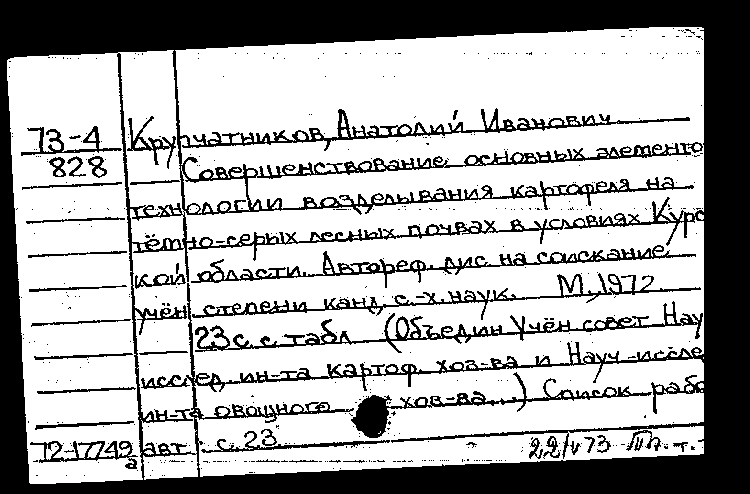 73-4 Крупчатников, Анатолий Иванович
828 Совершенствование основных элементо
технологии возделывания картофеля на
тёмно-серых лесных почвах в условиях Курс
кой области. Автореф. дис. на соискание
учён. степени канд. с.-х. наук. М., 1972.
23 с. с табл. (Объедин. Учён. совет Нау
исслед. ин-та картоф. хоз-ва и Науч-иссле
ин-та овощного хоз-ва...) Список рабо
72-17749 авт.: с. 23
а 22/V 73